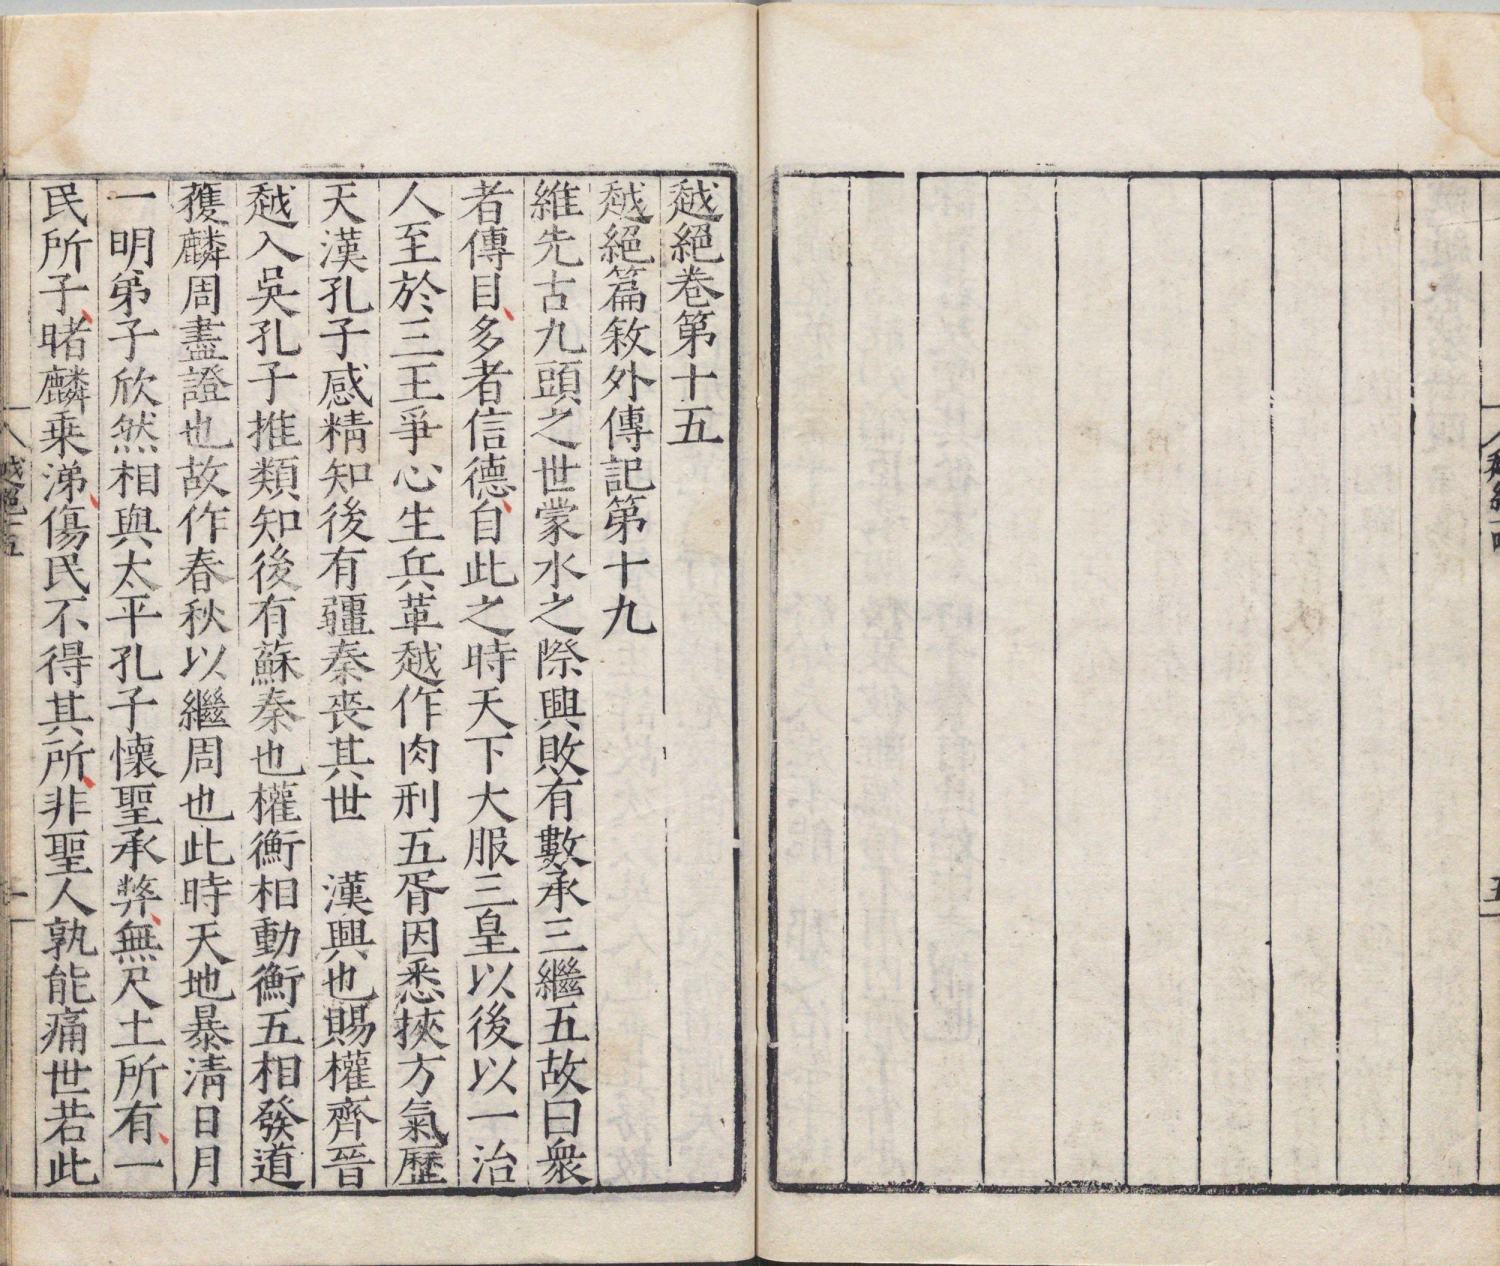 越絕卷第十五
越絕篇敘外傳記第十九
維先古九頭之世蒙水之際興敗有數承三繼五故曰衆
者傳目多者信德自此之時天下大服三皇以後以一治
人至於三王爭心生兵革越作肉刑五胥因悉挾方氣歷
天漢孔子感精知後有疆秦喪其世　漢興也賜權齊晉
越入吳孔子推類知後有蘇秦也權衡相動衡五相發道
獲麟周盡證也故作春秋以繼周也此時天地暴清日月
一明弟子欣然相與太平孔子懷聖承弊無尺土所有一
民所子睹麟乗涕傷民不得其所非聖人孰能痛世若此